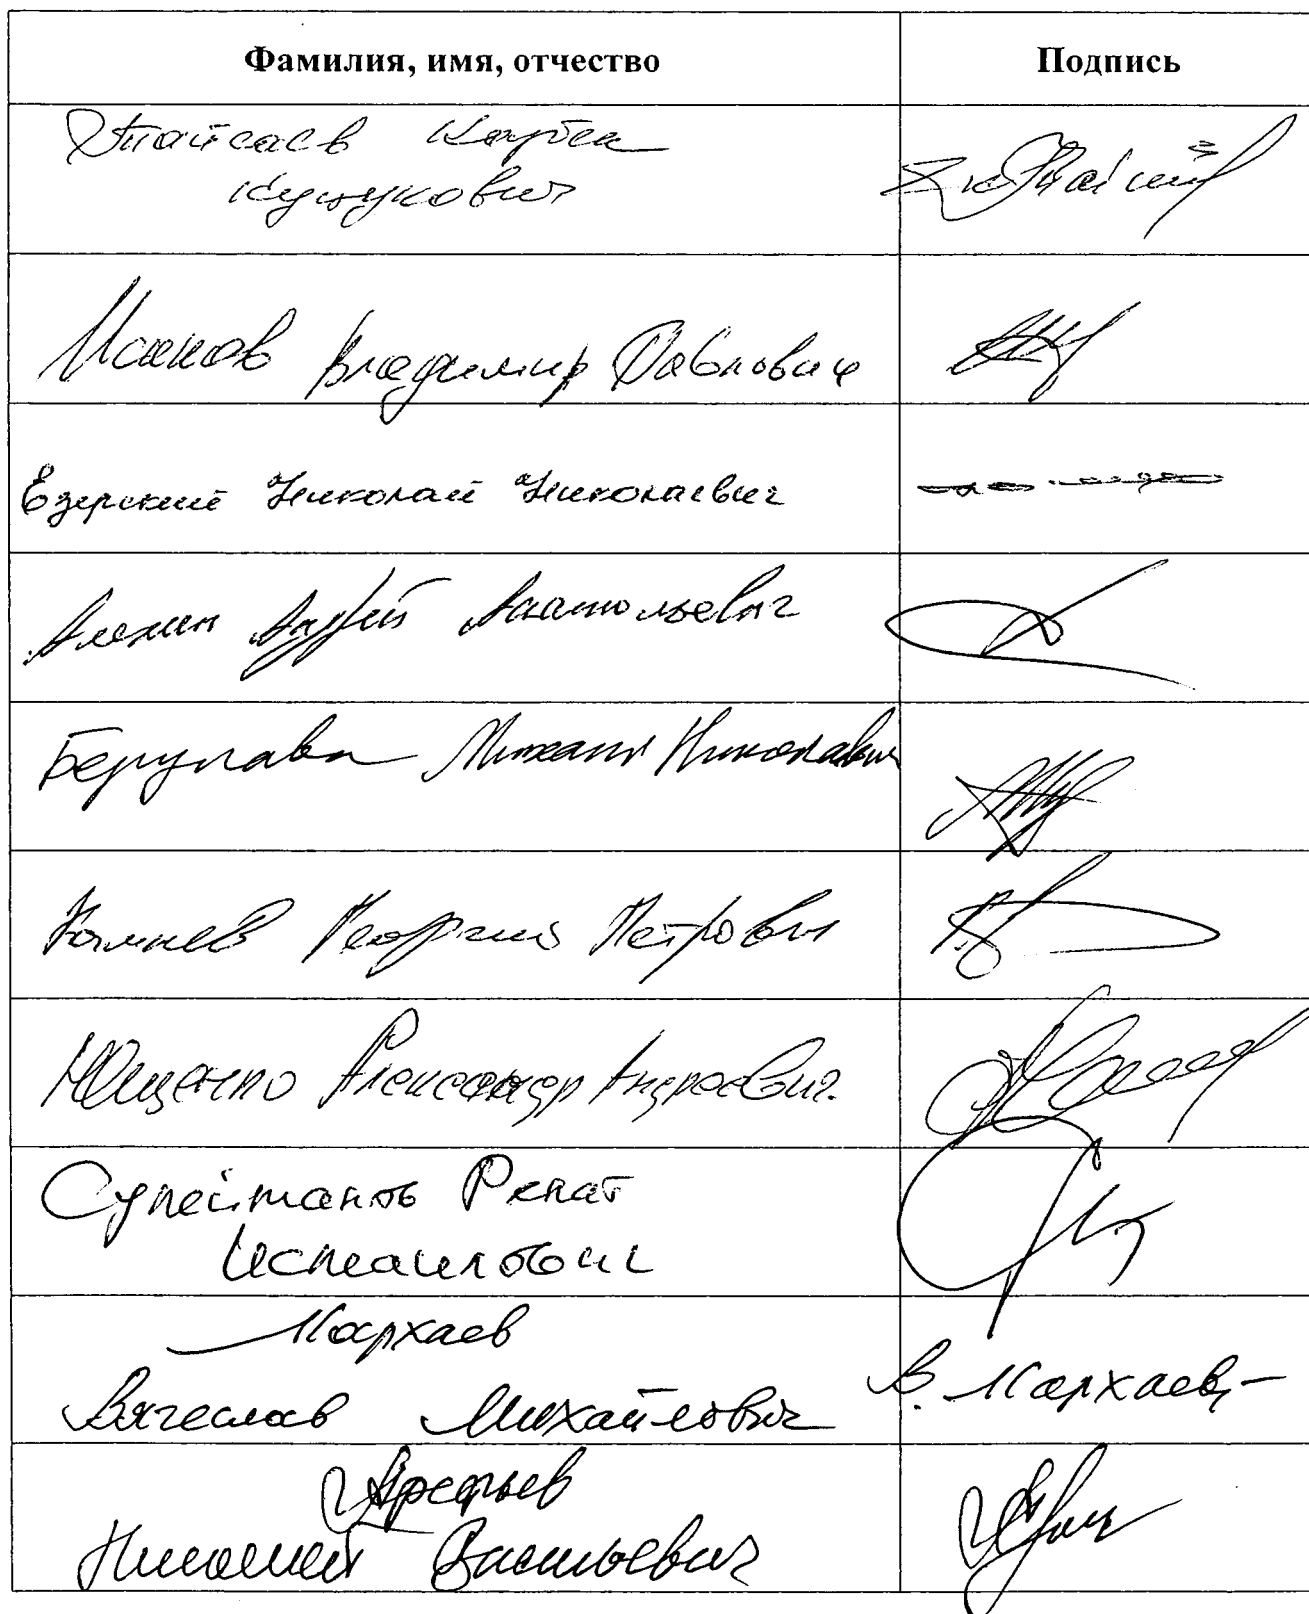 Фамилия, имя, отчество Подпись
Тайсаев Казбек
Куцукович
Исаков Владимир Павлович
Езерский Николай Николаевич
Алехин Андрей Анатольевич
Берулава Михаил Николаевич
Камнев Георгий Петрович
Ющенко Александр Андреевич.
Сулейманов Ренат
Исмаилович
Мархаев
Вячеслав Михайлович В. Мархаев
Арефьев
Николай Васильевич